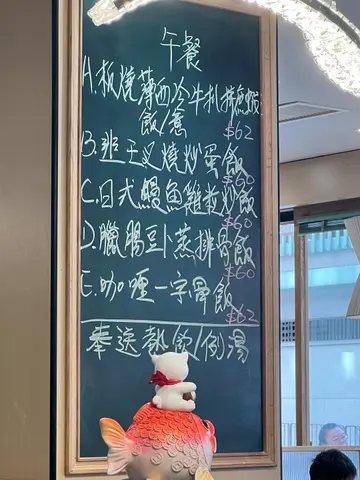 午餐
A.板燒薄西冷牛扒拼魚蝦
飯/意
$62
B.韭王叉燒炒蛋飯
$60
C.日式鰻魚雞粒炒飯
$60
D.臘腸豆卜蒸排骨飯
$60
E.咖喱一字骨飯
$62
奉送熱飲/例湯